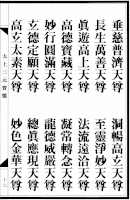 垂慈普濟天尊　洞暢高玄天尊
長生萬善天尊　至靈淨妙天尊
眞遊高上天尊　法流天尊
高德寶藏天尊　凝常轉念天尊
妙行圓滿天尊　龍德威嚴天尊
玄德定願天尊　總眞應現天尊
高玄太素天尊　妙色金華天尊
太上三元寶懺